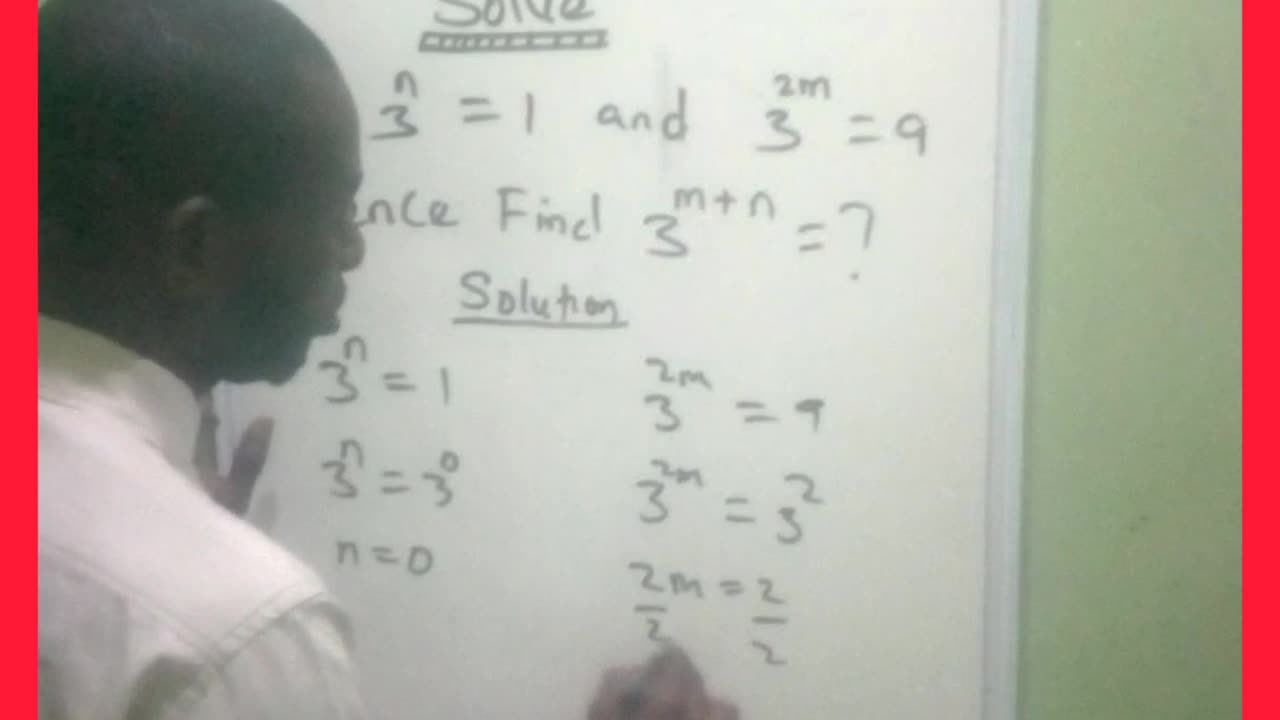 Solve
3ⁿ = 1 and 3²ᵐ = 9
Find 3ᵐ⁺ⁿ = ?
Solution
3ⁿ = 1
3ⁿ = 3⁰
n = 0
3²ᵐ = 9
3²ᵐ = 3²
2m/2 = 2/2